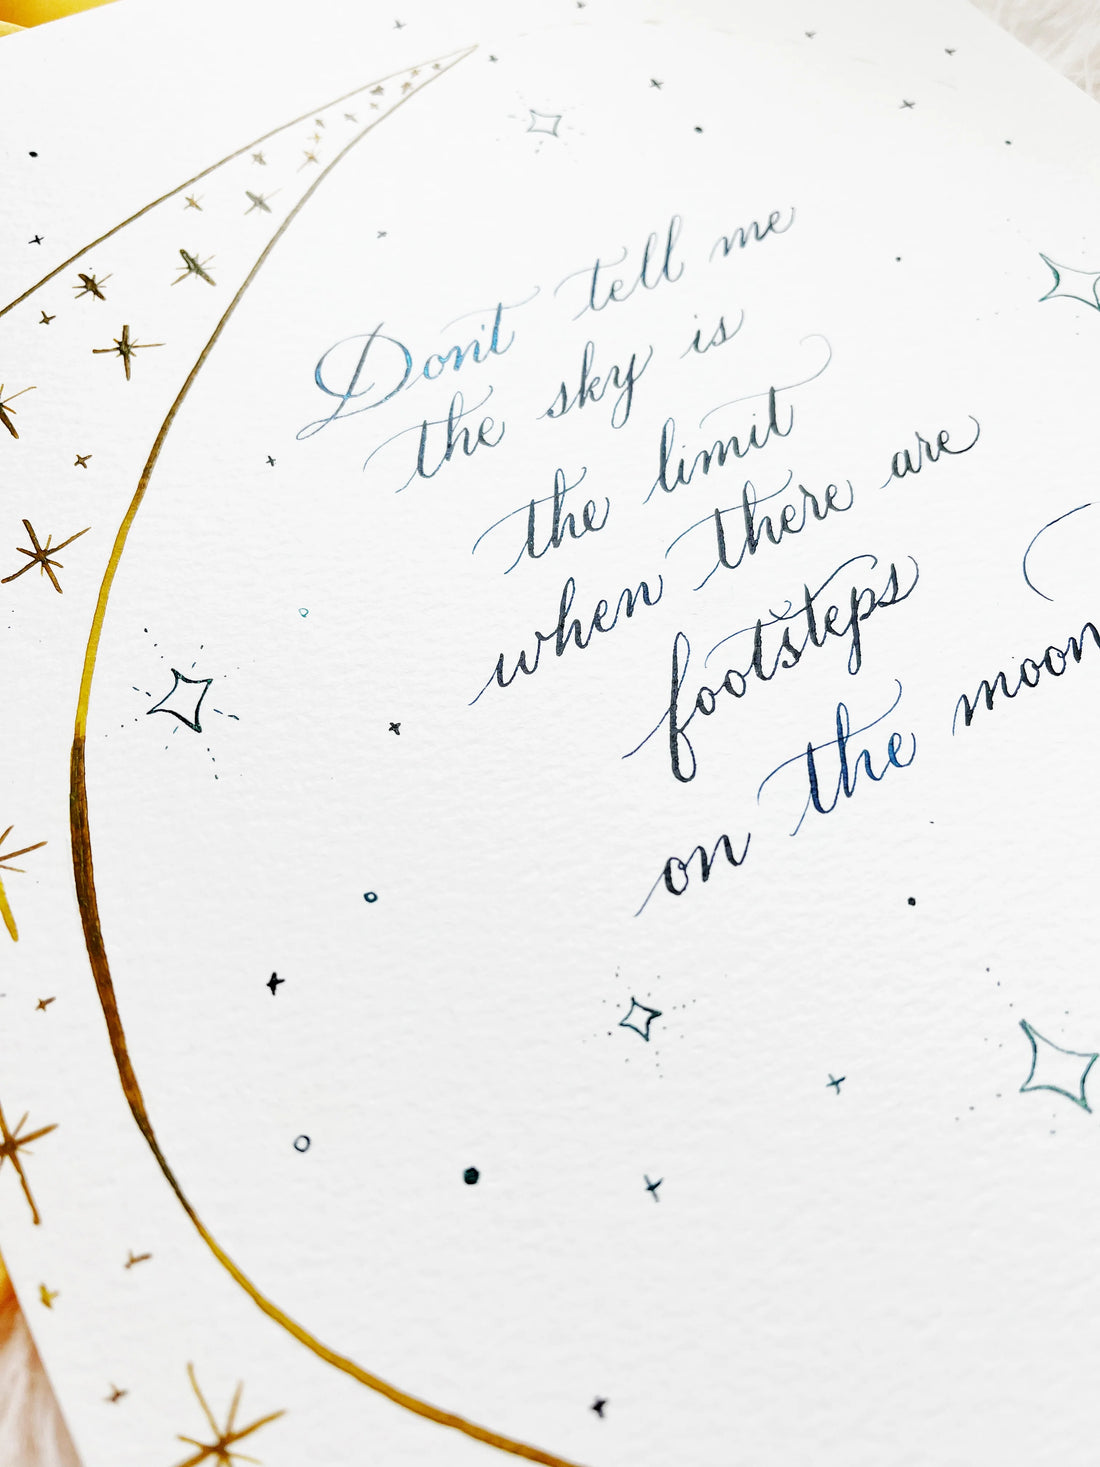 Don't tell me
the sky is
the limit
when there are
footsteps
on the moon